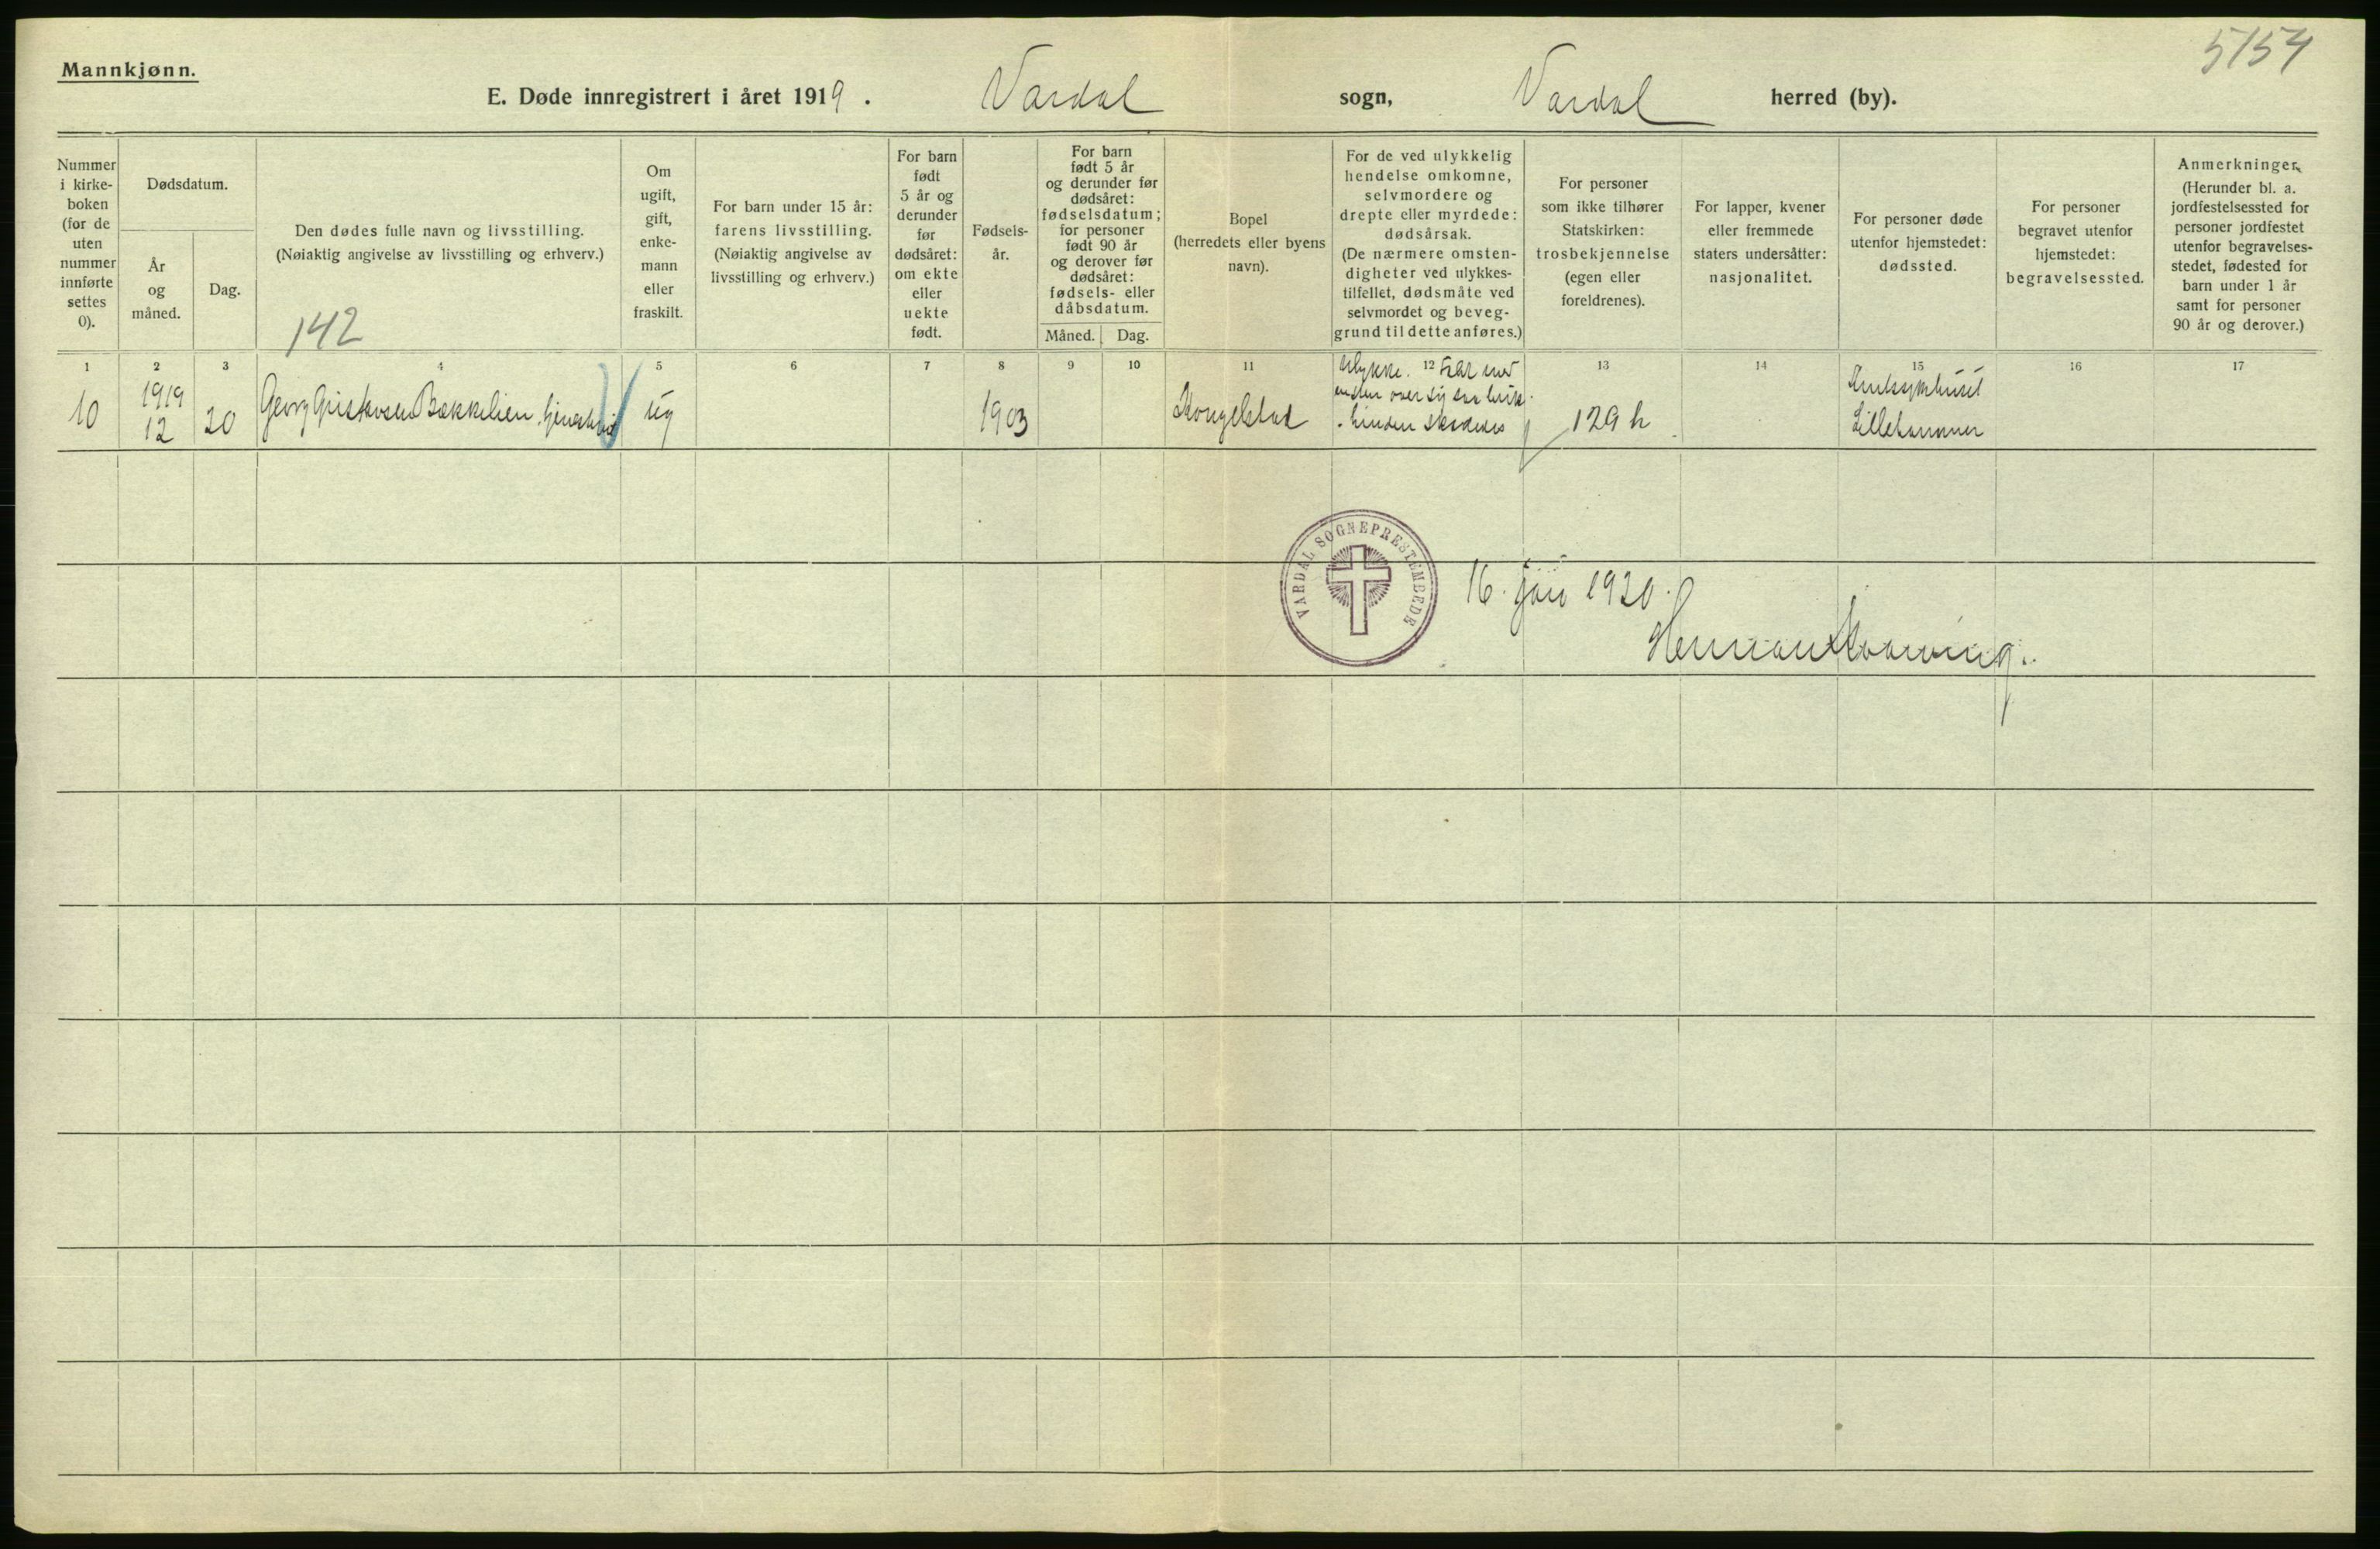 5154
Mannkjønn.
E. Døde innregistrert i året 1919. Vardal sogn, Vardal herred (by).
Nummer
i kirke-
boken
(for de
uten
nummer
innførte
settes
0).
Dødsdatum.
År
og
måned.
Dag.
Den dødes fulle navn og livsstilling.
(Nøiaktig angivelse av livsstilling og erhverv.)
142
Om
ugift,
gift,
enke-
mann
eller
fraskilt.
For barn under 15 år:
farens livsstilling.
(Nøiaktig angivelse av
livsstilling og erhverv.)
For barn
født
5 år og
derunder
før
dødsåret:
om ekte
eller
uekte
født.
Fødsels-
år.
For barn
født 5 år
og derunder før
dødsåret:
fødselsdatum;
for personer
født 90 år
og derover før
dødsåret:
fødsels- eller
dåbsdatum.
Måned. Dag.
Bopel
(herredets eller byens
navn).
For de ved ulykkelig
hendelse omkomne,
selvmordere og
drepte eller myrdede:
dødsårsak.
(De nærmere omsten-
digheter ved ulykkes-
tilfellet, dødsmåte ved
selvmordet og beveg-
grund til dette anføres.)
For personer
som ikke tilhører
Statskirken:
trosbekjennelse
(egen eller
foreldrenes).
For lapper, kvener
eller fremmede
staters undersåtter:
nasjonalitet.
For personer døde
utenfor hjemstedet:
dødssted.
For personer
begravet utenfor
hjemstedet:
begravelsessted.
Anmerkninger.
(Herunder bl. a.
jordfestelsessted for
personer jordfestet
utenfor begravelses-
stedet, fødested for
barn under 1 år
samt for personer
90 år og derover.)
1 2 3 4 5 6 7 8 9 10 11 12 13 14 15 16 17
10
1919
12
20
Georg Gustavsen Bækkelien
ug
1903
Ulykke.
over
129 h
Lillehammer
VARDAL SOGNEPRESTEMBEDE
16. juni 1920.
Herman